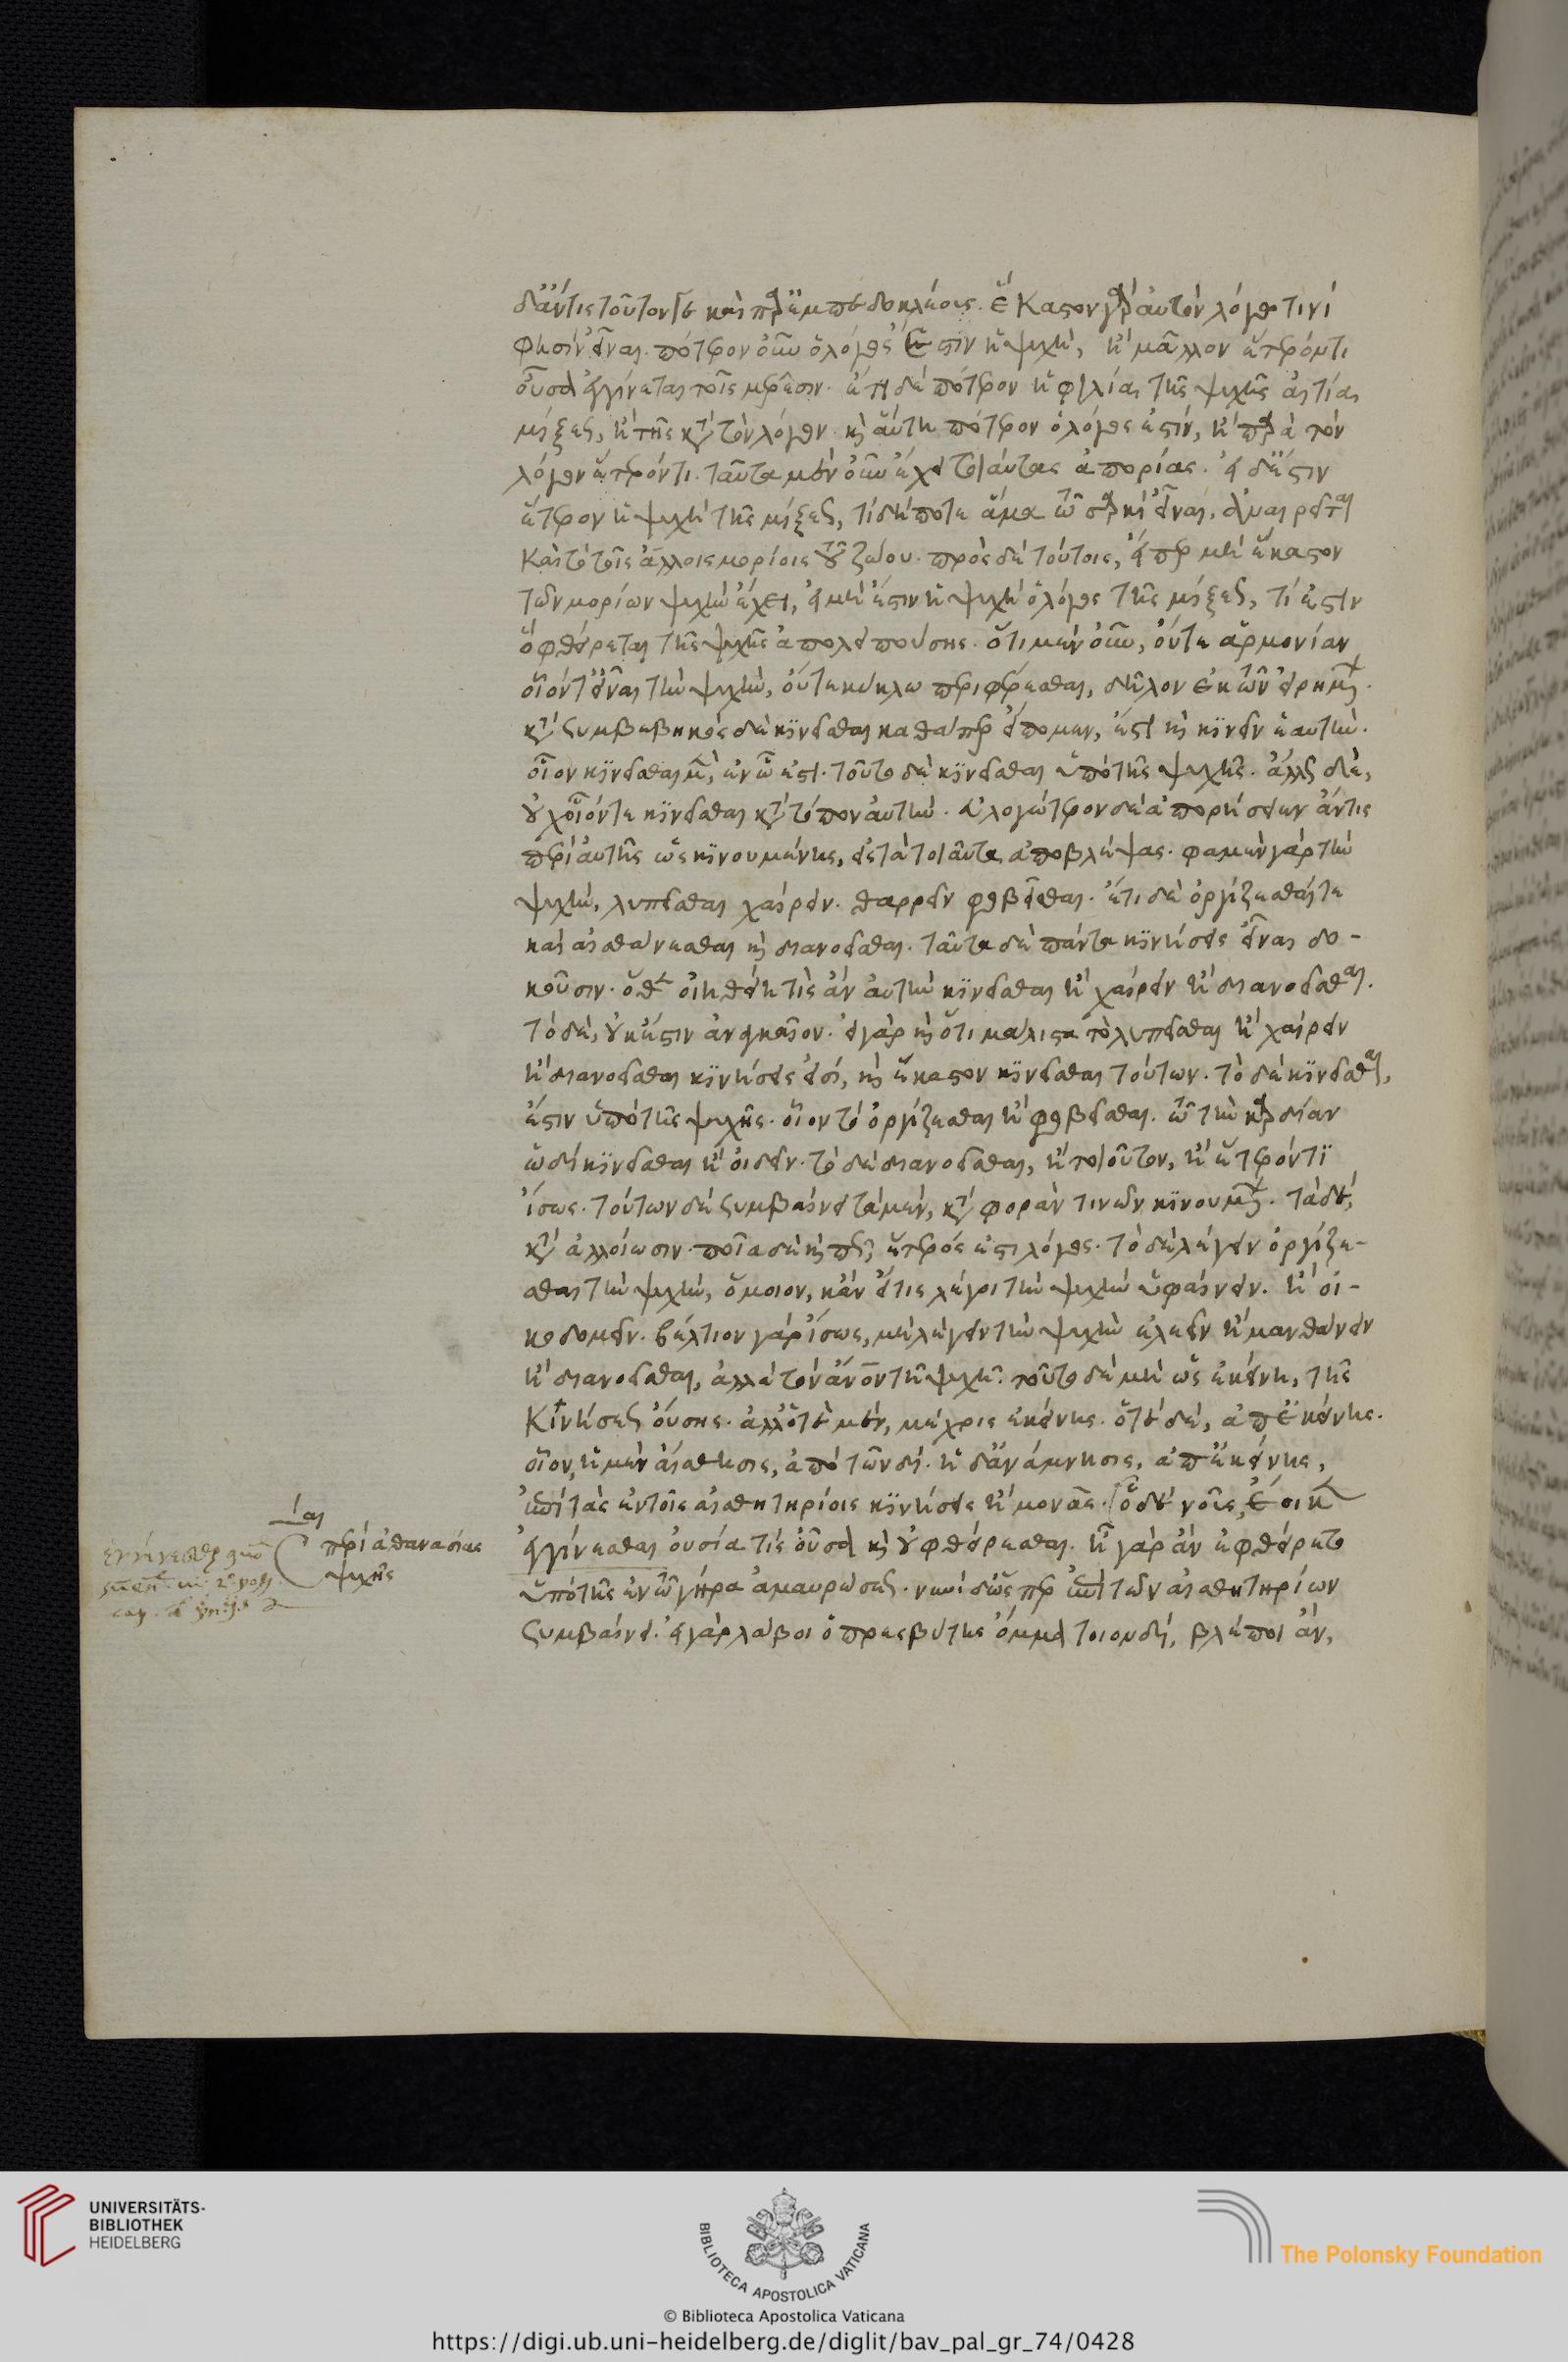 δ' ἄν τις τοῦτον γε καὶ παρ' ἐμπεδοκλέους. ἕκαστον γὰρ αὐτῶν λόγω τινί
φησὶν εἶναι. πότερον οὖν ὁ λόγος ἐστὶν ἡ ψυχή, ἢ μᾶλλον ἕτερόν τι
οὖσα ἐγγίνεται τοῖς μέρεσιν. ἔτι δὲ πότερον ἡ φιλία τῆς ψυχῆς αἰτία
μίξεως, ἢ τῆς κατὰ τὸν λόγον. καὶ αὕτη πότερον ὁ λόγος ἐστίν, ἢ παρὰ τὸν
λόγον ἕτερόν τι. ταῦτα μὲν οὖν ἔχει τοιαύτας ἀπορίας. εἰ δ' ἔστιν
ἕτερον ἡ ψυχὴ τῆς μίξεως, τί δή ποτε ἅμα τῶ σαρκὶ εἶναι, ἀναιρεῖται
καὶ τὸ τοῖς ἄλλοις μορίοις τοῦ ζώου. πρὸς δὲ τούτοις, εἴπερ μὴ ἕκαστον
τῶν μορίων ψυχὴν ἔχει, εἰ μὴ ἔστιν ἡ ψυχὴ ὁ λόγος τῆς μίξεως, τί ἐστιν
ὃ φθείρεται τῆς ψυχῆς ἀπολειπούσης. ὅτι μὲν οὖν, οὔτε ἁρμονίαν
οἷόν τ' εἶναι τὴν ψυχὴν, οὔτε κύκλω περιφέρεσθαι, δῆλον ἐκ τῶν εἰρημένων.
κατὰ συμβεβηκὸς δὲ κινεῖσθαι καθάπερ εἴπομεν, ἔστι καὶ κινεῖν ἑαυτήν.
οἷον κινεῖσθαι μὲν, ἐν ᾧ ἐστι. τοῦτο δὲ κινεῖσθαι ὑπὸ τῆς ψυχῆς. ἄλλως δὲ,
οὐχ οἷόν τε κινεῖσθαι κατὰ τόπον αὐτήν. εὐλογώτερον δὲ ἀπορήσειεν ἄν τις
περὶ αὐτῆς ὡς κινουμένης, εἰς τὰ τοιαῦτα ἀποβλέψας. φαμὲν γὰρ τὴν
ψυχὴν, λυπεῖσθαι χαίρειν. θαρρεῖν φοβεῖσθαι. ἔτι δὲ ὀργίζεσθαί τε
καὶ αἰσθάνεσθαι καὶ διανοεῖσθαι. ταῦτα δὲ πάντα κινήσεις εἶναι δο-
κοῦσιν. ὅθεν οἰηθείη τὶς ἂν αὐτὴν κινεῖσθαι ἢ χαίρειν ἢ διανοεῖσθαι.
τὸ δὲ, οὐκ ἔστιν ἀναγκαῖον. εἰ γὰρ καὶ ὅτι μάλιστα τὸ λυπεῖσθαι ἢ χαίρειν
ἢ διανοεῖσθαι κινήσεις εἰσί, καὶ ἕκαστον κινεῖσθαι τούτων. τὸ δὲ κινεῖσθαι,
ἐστὶν ὑπὸ τῆς ψυχῆς. οἷον τὸ ὀργίζεσθαι ἢ φοβεῖσθαι. τῶ τὴν καρδίαν
ὡδὶ κινεῖσθαι ἢ οἰδεῖν. τὸ δὲ διανοεῖσθαι, ἢ τοιοῦτον, ἢ ἕτερόν τι
ἴσως. τούτων δὲ συμβαίνει τὰ μέν, κατὰ φορὰν τινῶν κινουμένων. τὰ δὲ,
κατὰ ἀλλοίωσιν. ποῖα δὲ καὶ πῶς, ἕτερός ἐστι λόγος. τὸ δὲ λέγειν ὀργίζε-
σθαι τὴν ψυχὴν, ὅμοιον, κἂν εἴ τις λέγοι τὴν ψυχὴν ὑφαίνειν. ἢ οἰ-
κοδομεῖν. βέλτιον γὰρ ἴσως, μὴ λέγειν τὴν ψυχὴν ἐλεεῖν ἢ μανθάνειν
ἢ διανοεῖσθαι, ἀλλὰ τὸν ἄνον τῆ ψυχῆ. τοῦτο δὲ μὴ ὡς ἐκείνη, τῆς
κινήσεως οὔσης. ἀλλ' ὁτὲ μὲν, μέχρις ἐκείνης. ὁτὲ δὲ, ἀπ' ἐκείνης.
οἷον, ἡ μὲν αἴσθησις, ἀπὸ τῶνδί. ἡ δ' ἀνάμνησις, ἀπ' ἐκείνης,
ἐπὶ τὰς ἐν τοῖς αἰσθητηρίοις κινήσεις ἢ μονάς. ὁ δὲ νοῦς, ἔοικεν
ἐγγίνεσθαι οὐσία τὶς οὖσα καὶ οὐ φθείρεσθαι. ἦ γὰρ ἂν ἐφθείρετο
ὑπὸ τῆς ἐν τῶ γήρα ἀμαυρώσεως. νυνὶ δ' ὥσπερ ἐπὶ τῶν αἰσθητηρίων
συμβαίνει. εἰ γὰρ λάβοι ὁ πρεσβύτης ὄμμα τοιονδὶ, βλέποι ἂν,
περὶ ἀθανασίας
ψυχῆς
UNIVERSITÄTS-
BIBLIOTHEK
HEIDELBERG
BIBLIOTECA APOSTOLICA VATICANA
© Biblioteca Apostolica Vaticana
The Polonsky Foundation
https://digi.ub.uni-heidelberg.de/diglit/bav_pal_gr_74/0428